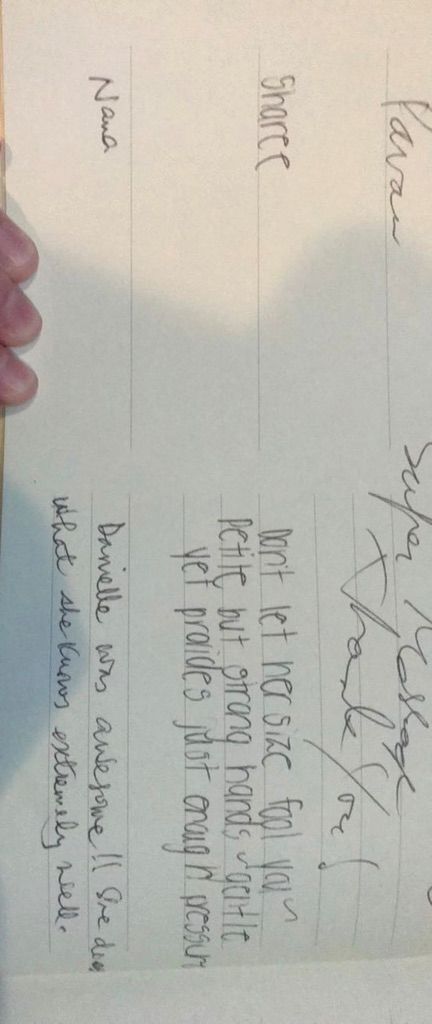 Pavan
Super Massage
Thank You!
Sharee
Don't let her size fool you ~
petite but strong hands ~ gentle
yet provides just enough pressure
Nana
Danielle was awesome!! She does
what she knows extremely well.